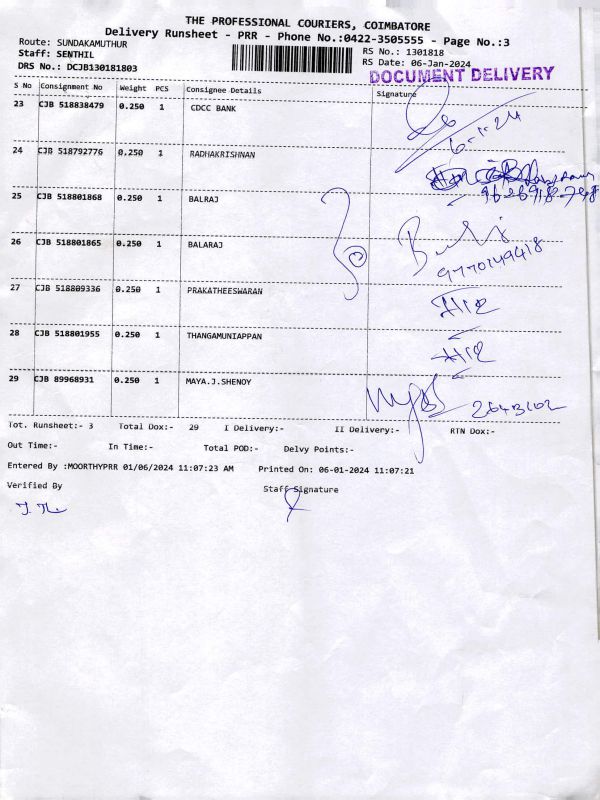 THE PROFESSIONAL COURIERS, COIMBATORE
Delivery Runsheet - PRR - Phone No.:0422-3505555 - Page No.:3
Route: SUNDAKAMUTHUR
RS No.: 1301818
Staff: SENTHIL
RS Date: 06-Jan-2024
DRS No.: DCJB130181803
DOCUMENT DELIVERY
S No Consignment No Weight PCS Consignee Details Signature
23 CJB 518838479 0.250 1 CDCC BANK
6-1-24
24 CJB 518792776 0.250 1 RADHAKRISHNAN
25 CJB 518801868 0.250 1 BALRAJ
26 CJB 518801865 0.250 1 BALARAJ
9770149418
27 CJB 518809336 0.250 1 PRAKATHEESWARAN
28 CJB 518801955 0.250 1 THANGAMUNIAPPAN
29 CJB 89968931 0.250 1 MAYA.J.SHENOY
Tot. Runsheet:- 3 Total Dox:- 29 I Delivery:- II Delivery:- RTN Dox:-
Out Time:- In Time:- Total POD:- Delvy Points:-
Entered By :MOORTHYPRR 01/06/2024 11:07:23 AM Printed On: 06-01-2024 11:07:21
Verified By Staff Signature